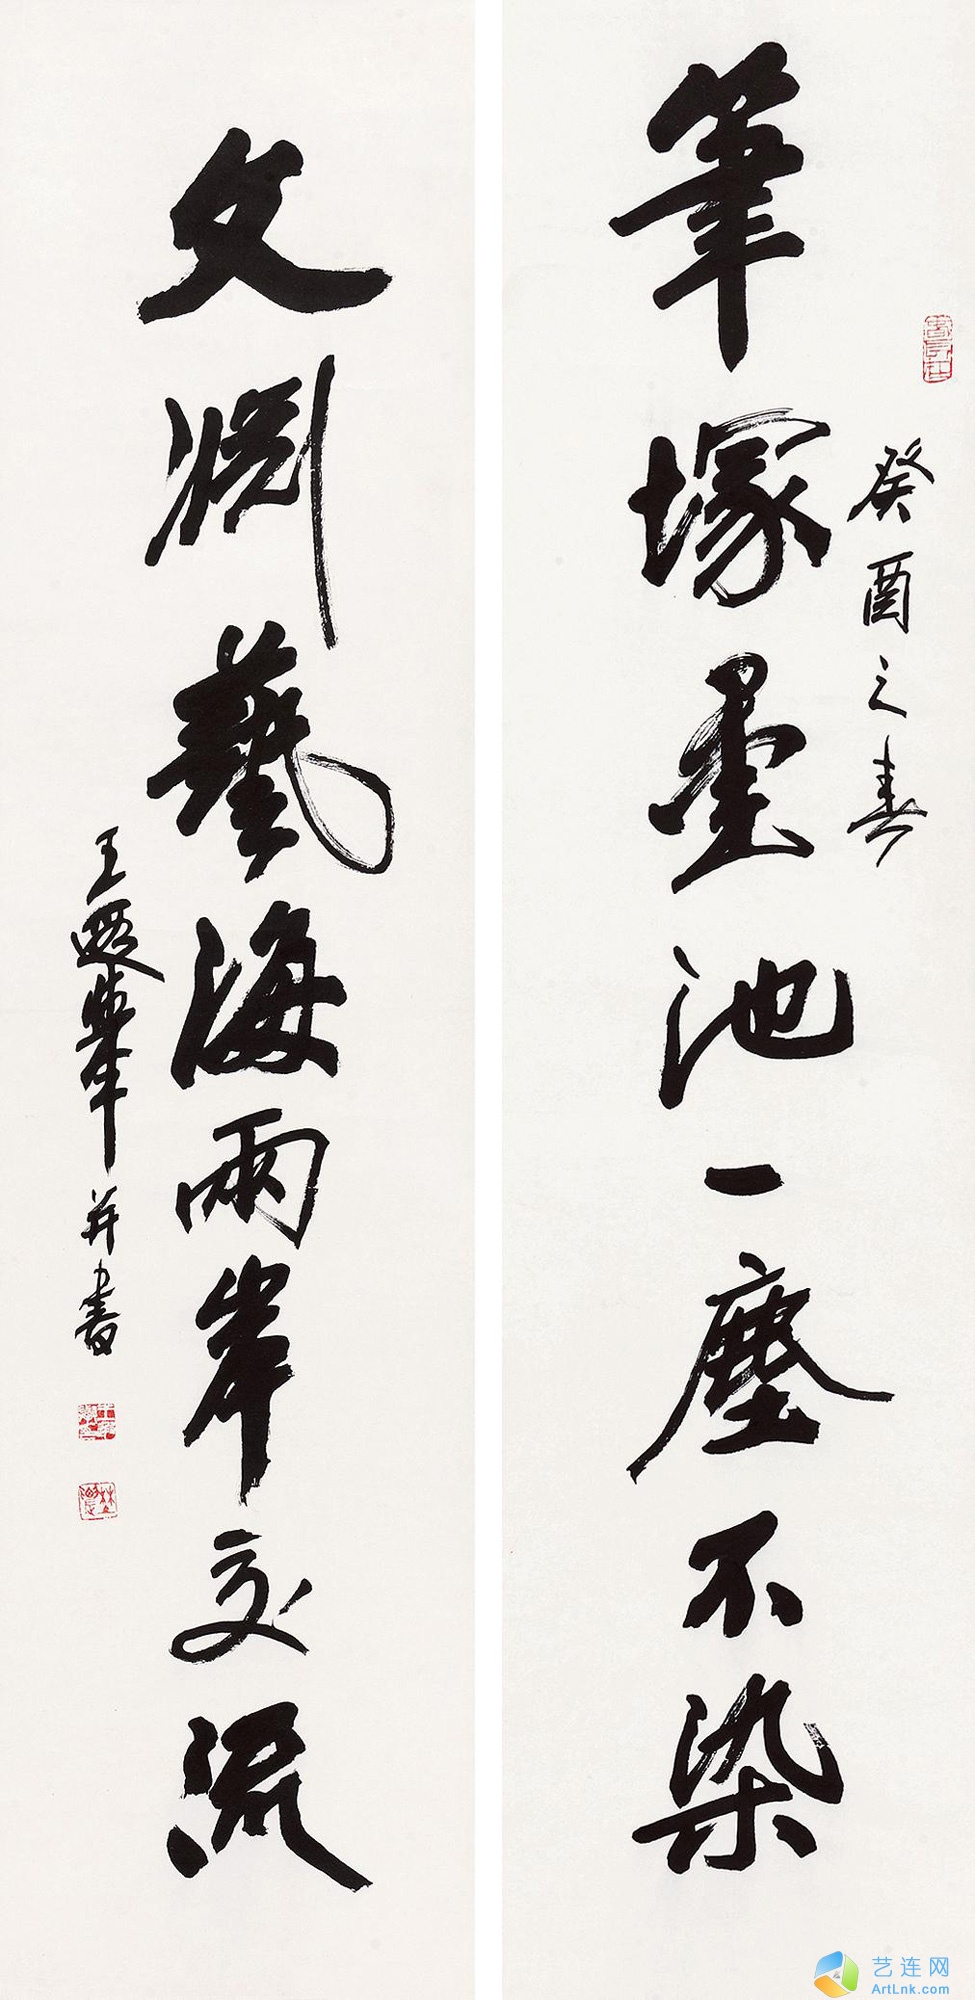 癸酉之春
筆塚墨池一塵不染
文淵藝海兩岸交流
王遐舉并書
艺连网
ArtLnk.com